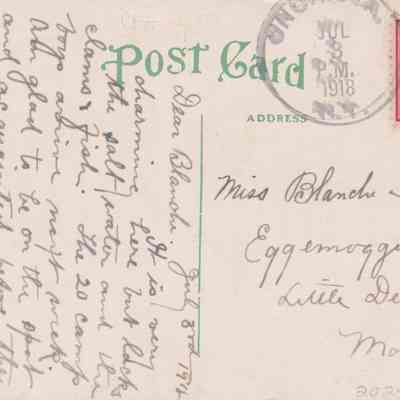 Post Card
ADDRESS
JUL
3
P.M.
1918
N.Y.
July 3rd 191
Dear Blanche:
It is very
charming here but lacks
the salt water and the
clams & fish. The 20 camp
boys arrive next week
Am glad to be on the spot
and acquainted before the
Miss Blanche
Eggemoggi
Little De
2025